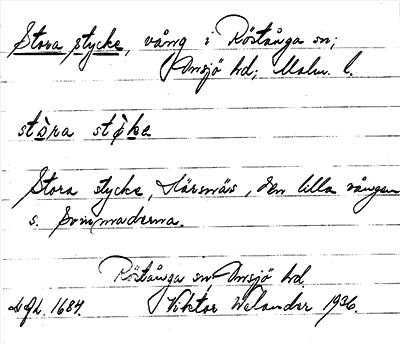 Stora stycke, vång i Röstånga sn;
Onsjö hd; Malm. l.
stòra stỳke
Stora stycke, Härsnäs, den lilla vången
s. Svinmaderna.
Röstånga sn, Onsjö hd
LAL. 1684. Viktor Welander 1936.